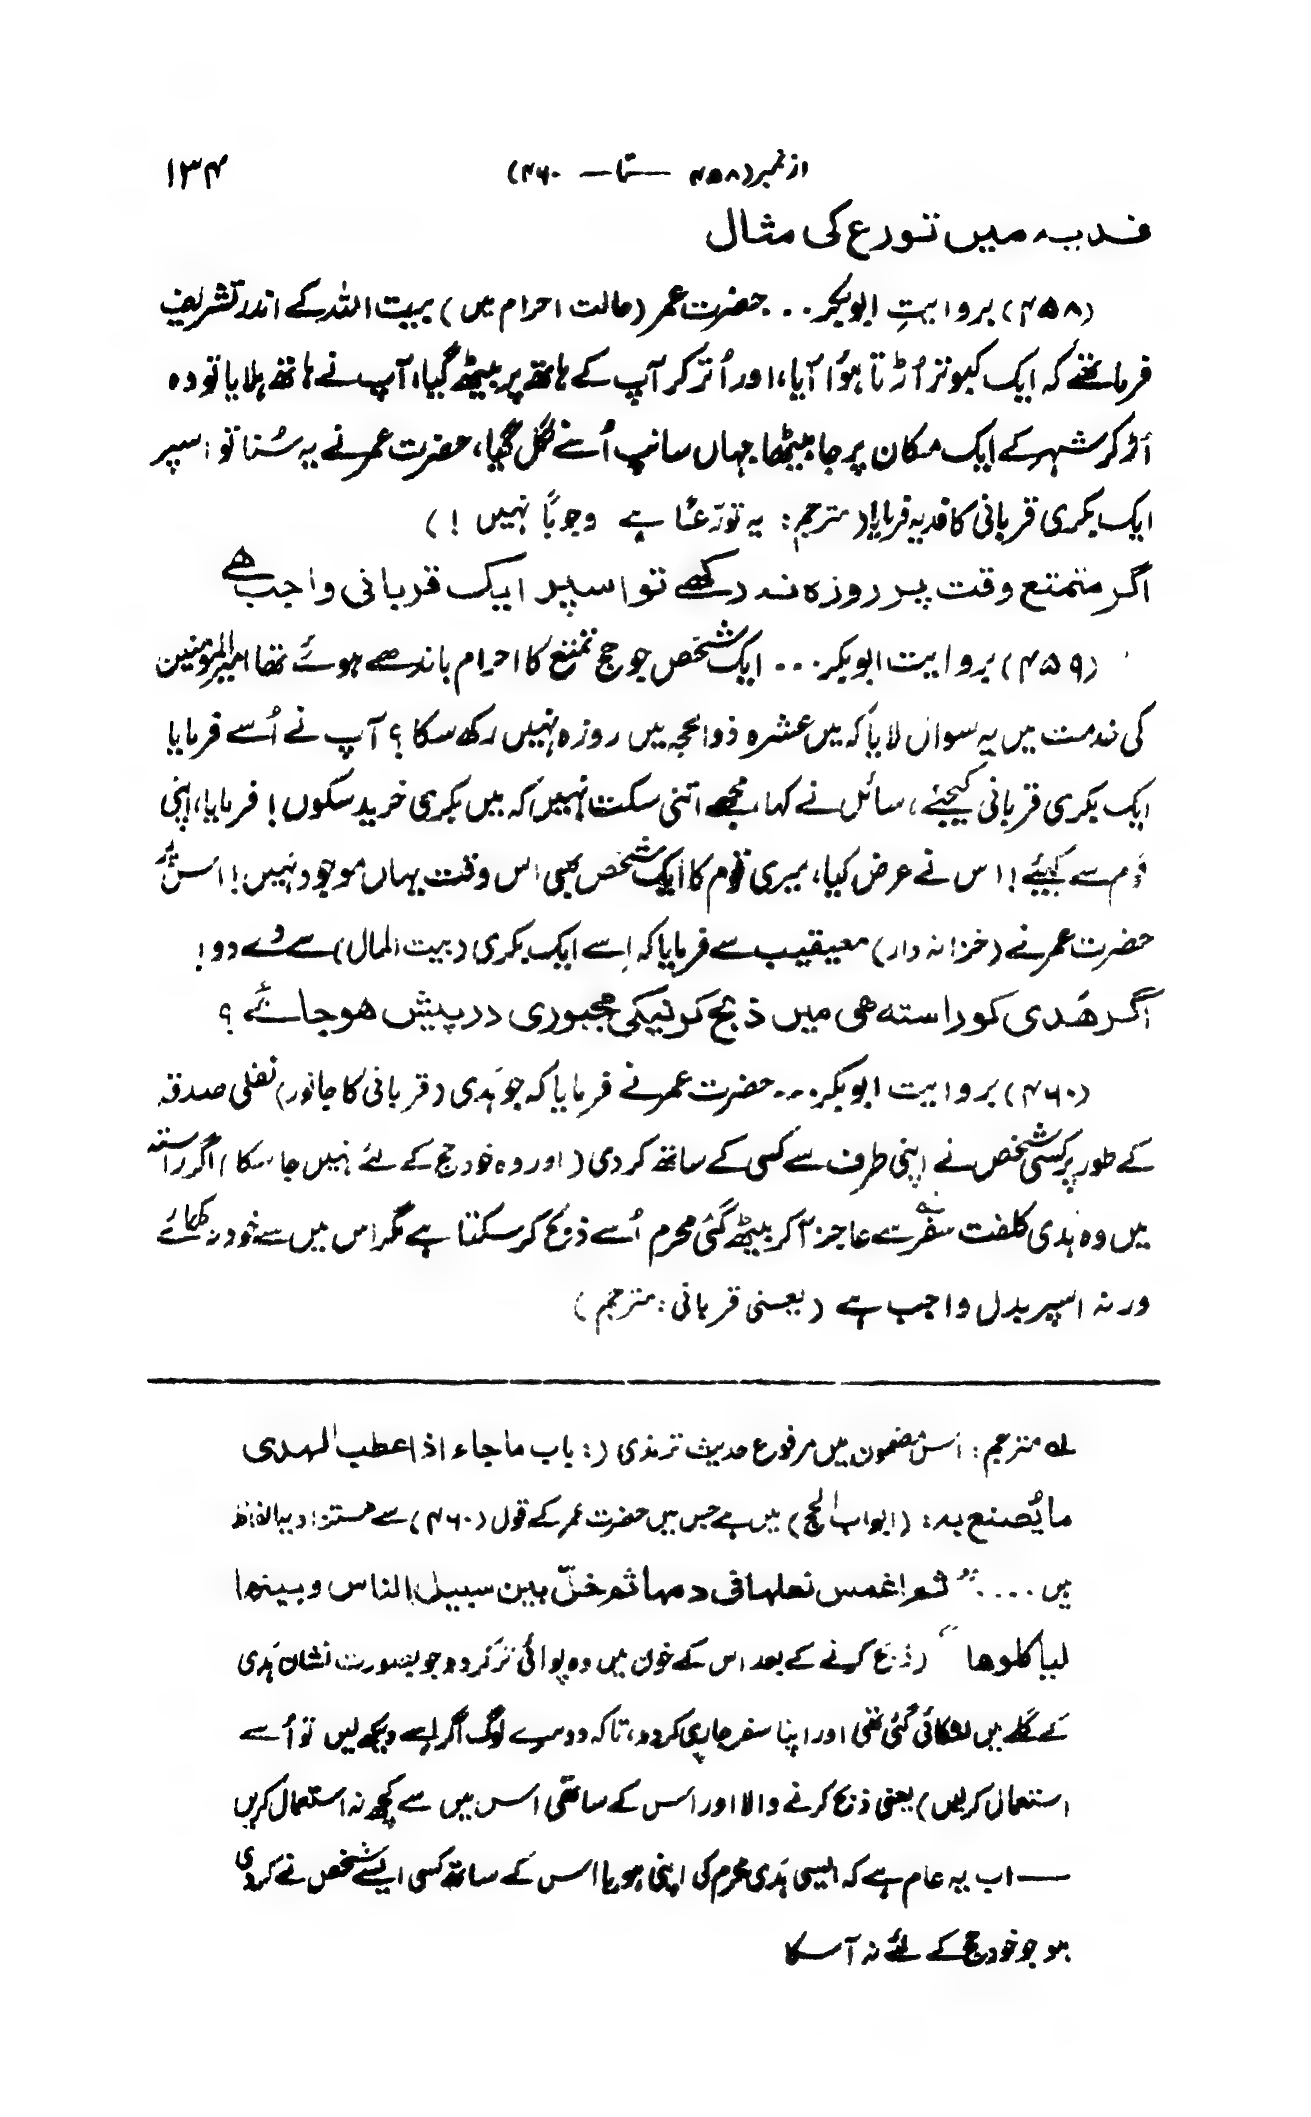 از نمبر (۴۵۸ — تا — ۴۶۰) ۱۳۴
فدیہ میں تورع کی مثال
(۴۵۸) بروایتِ ابوبکر... حضرت عمر (حالت احرام میں) بیت اللہ کے اندر تشریف
فرما تھے کہ ایک کبوتر اُڑتا ہوُا آیا، اور اُتر کر آپ کے ہاتھ پر بیٹھ گیا، آپ نے ہاتھ ہلایا تو وہ
اُڑ کر شہر کے ایک مکان پر جا بیٹھا جہاں سانپ اُسے نگل گیا، حضرت عمر نے یہ سُنا تو اسپر
ایک بکری قربانی کا فدیہ فرمایا (مترجم: یہ تورّعًا ہے وجوبًا نہیں!)
اگر متمتع وقت پر روزہ نہ رکھے تو اسپر ایک قربانی واجب ہے
(۴۵۹) بروایت ابوبکر... ایک شخص جو حج تمتع کا احرام باندھے ہوئے تھا امیرالمؤمنین
کی خدمت میں یہ سوال لایا کہ میں عشرہ ذوالحجہ میں روزہ نہیں رکھ سکا؟ آپ نے اُسے فرمایا
ایک بکری قربانی کیجئے، سائل نے کہا، مجھے اتنی سکت نہیں کہ میں بکری خرید سکوں! فرمایا، اپنی
قوم سے کہیئے! اس نے عرض کیا، میری قوم کا ایک شخص بھی اس وقت یہاں موجود نہیں! اس پر
حضرت عمر نے (خزانہ دار) معیقیب سے فرمایا کہ اِسے ایک بکری (بیت المال) سے دے دو!
اگر ھَدی کو راستہ ھی میں ذبح کرنیکی مجبوری درپیش ھو جائے؟
(۴۶۰) بروایت ابوبکر... حضرت عمر نے فرمایا کہ جو ہَدی (قربانی کا جانور) نفلی صدقہ
کے طور پر کسی شخص نے اپنی طرف سے کسی کے ساتھ کر دی (اور وہ خود حج کے لئے نہیں جا سکا) اگر راستہ
میں وہ ہَدی کلفت سفر سے عاجز آ کر بیٹھ گئی محرم اُسے ذبح کر سکتا ہے مگر اس میں سے خود نہ کھائے
ورنہ اسپر بدل واجب ہے (یعنی قربانی: مترجم)
لہ مترجم: اس مضمون میں مرفوع حدیث ترمذی (: باب ما جاء اذا عطب الھدی
ما یُصنع بہ: (ابواب الحج) میں ہے جس میں حضرت عمر کے قول (۴۶۰) سے مستزاد یہ الفاظ
ہیں.... ”ثم اغمس نعلھا فی دمھا ثم خلّ بین سبیل الناس وبینھا
لیأکلوھا“ (ذبح کرنے کے بعد اس کے خون میں وہ پوائی تر کر دو جو بصورت نشان ہَدی
کے گلے میں لٹکائی گئی تھی اور اپنا سفر جاری کردو، تاکہ دوسرے لوگ اگر اسے دیکھ لیں تو اُسے
استعمال کریں) یعنی ذبح کرنے والا اور اس کے ساتھی اس میں سے کچھ نہ استعمال کریں
— اب یہ عام ہے کہ ایسی ہَدی محرم کی اپنی ہو یا اس کے ساتھ کسی ایسے شخص نے کر دی
ہو جو خود حج کے لئے نہ آ سکا